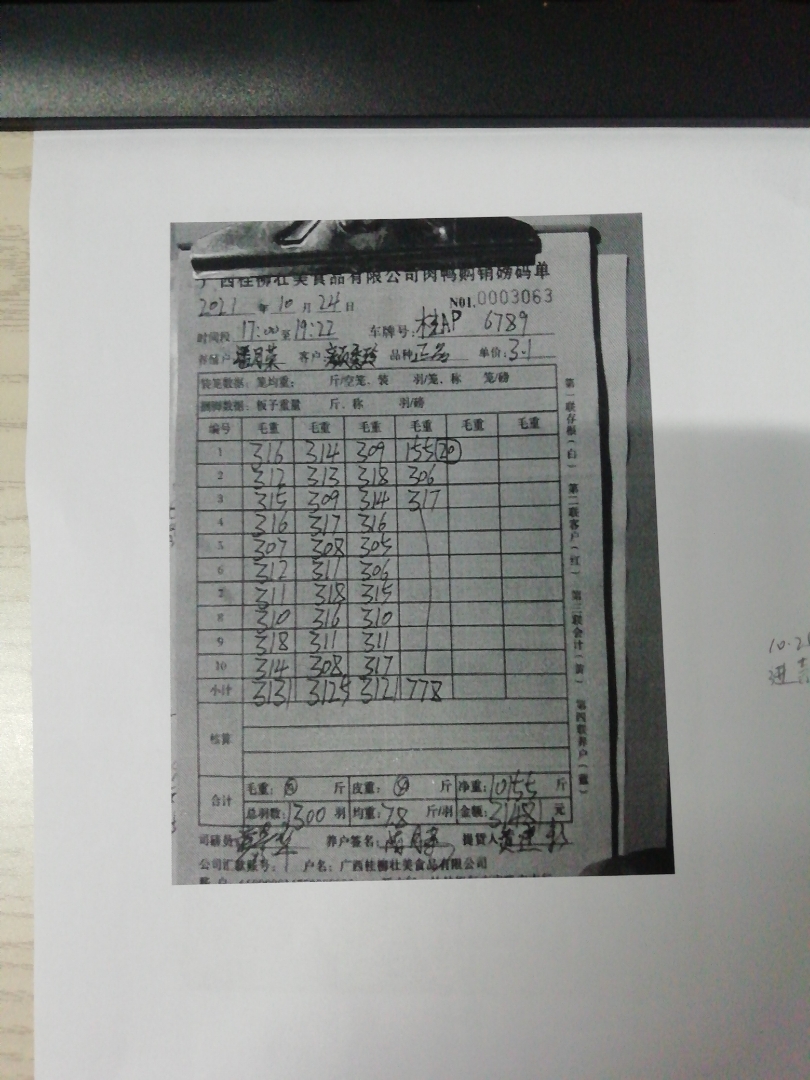 广西桂柳壮美食品有限公司肉鸭购销磅码单
2021 年 10 月 24 日 N01.0003063
时间段 17:00 至 19:22 车牌号: 桂AP 6789
养户 客户: 品种 正 单价: 3.1
装笼数据: 笼均重: 斤/空笼、装 羽/笼、称 笼/磅
捆脚数据: 板子重量 斤、称 羽/磅
编号 毛重 毛重 毛重 毛重 毛重 毛重
1 316 314 309 155 20
2 312 313 318 306
3 315 309 314 317
4 316 317 316
5 307 308 305
6 312 311 306
7 311 318 315
8 310 316 310
9 318 311 311
10 314 308 317
小计 3131 3125 3121 778
核算
合计 毛重: 斤 皮重: 斤 净重: 10155 斤
总羽数: 1300 羽 均重: 7.8 斤/羽 金额: 31481 元
司磅员: 养户签名: 提货人:
公司汇款账号: 户名: 广西桂柳壮美食品有限公司
第一联存根(白) 第二联客户(红) 第三联会计(黄) 第四联养户(蓝)